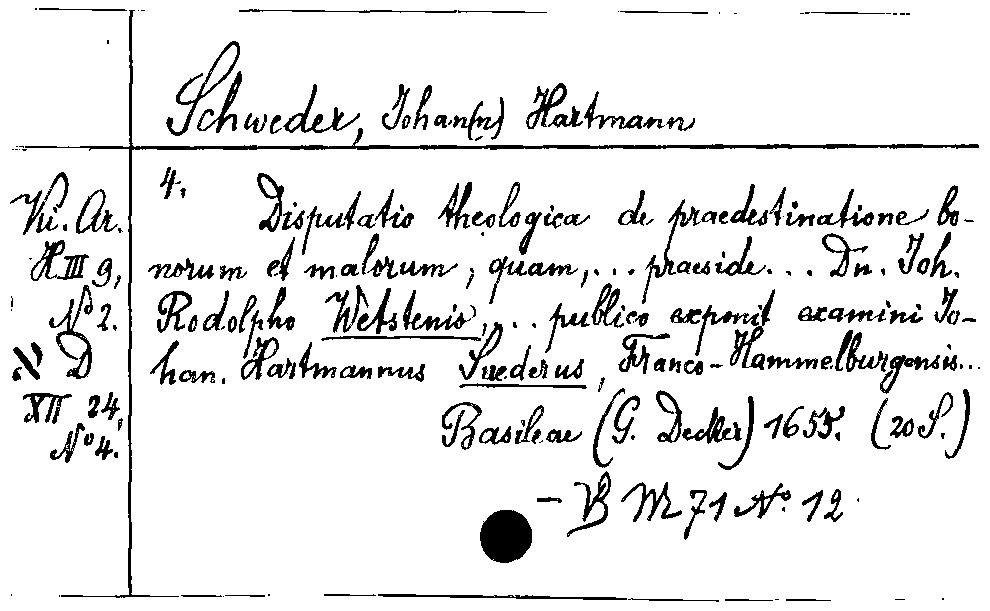 Schweder, Johan(n) Hartmann
4.
Ki. Ar.
H III 9,
No 2.
א D
XII 24,
No 4.
Disputatio theologica de praedestinatione bo-
norum et malorum, quam, ... praeside ... Dn. Joh.
Rodolpho Wetstenio, ... publico exponit examini Jo-
han. Hartmannus Suederus, Franco-Hammelburgensis...
Basileae (G. Decker) 1655. (20 S.)
- VB M 71 No. 12